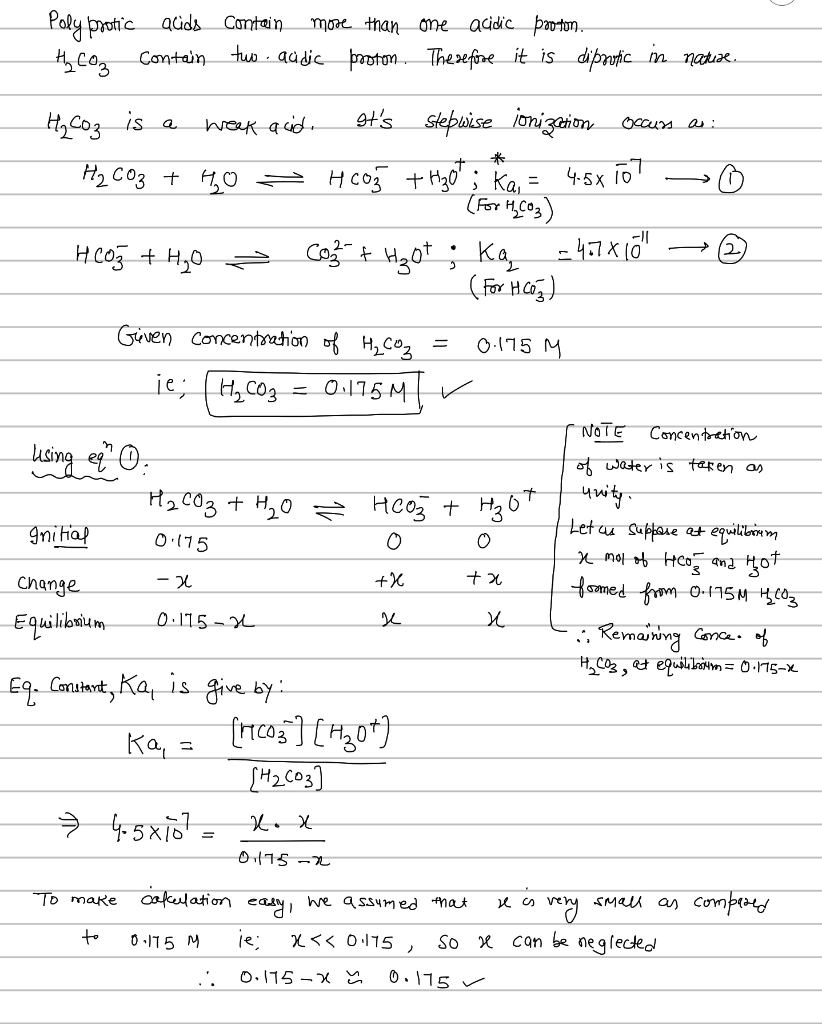 Polyprotic acids contain more than one acidic proton.
H₂CO₃ contain two acidic proton. Therefore it is diprotic in nature.
H₂CO₃ is a weak acid. It's stepwise ionization occurs as:
H₂CO₃ + H₂O ⇌ HCO₃⁻ + H₃O⁺ ; *Ka₁ = 4.5 x 10⁻⁷ → ①
(For H₂CO₃)
HCO₃⁻ + H₂O ⇌ CO₃²⁻ + H₃O⁺ ; Ka₂ = 4.7 x 10⁻¹¹ → ②
(For HCO₃⁻)
Given concentration of H₂CO₃ = 0.175 M
ie; H₂CO₃ = 0.175 M ✓
Using eqⁿ ①.
H₂CO₃ + H₂O ⇌ HCO₃⁻ + H₃O⁺
Initial 0.175 0 0
Change -x +x +x
Equilibrium 0.175-x x x
NOTE Concentration
of water is taken as
unity.
Let us suppose at equilibrium
x mol of HCO₃⁻ and H₃O⁺
formed from 0.175M H₂CO₃
∴ Remaining Conce. of
H₂CO₃, at equilibrium = 0.175-x
Eq. Constant, Ka₁ is give by:
Ka₁ = [HCO₃⁻] [H₃O⁺]
[H₂CO₃]
⇒ 4.5 x 10⁻⁷ = x . x
0.175 - x
To make calculation easy, we assumed that x is very small as compared
to 0.175 M ie; x << 0.175, so x can be neglected
∴ 0.175 - x ≈ 0.175 ✓